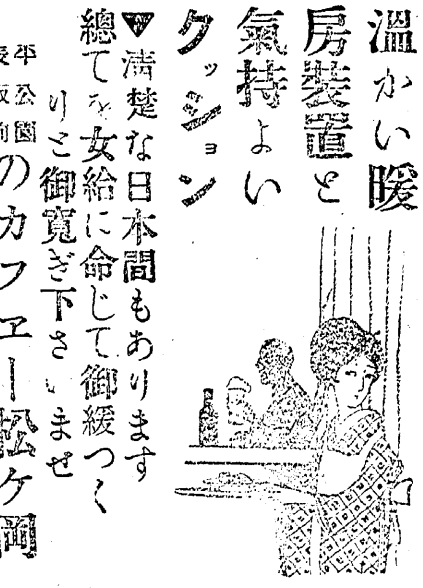 温かい暖
房装置と
氣持よい
クッション
▼清楚な日本間もあります
總てを女給に命じて御緩つく
りと御寛ぎ下さいませ
平公園
坂前
のカフヱー松ケ岡